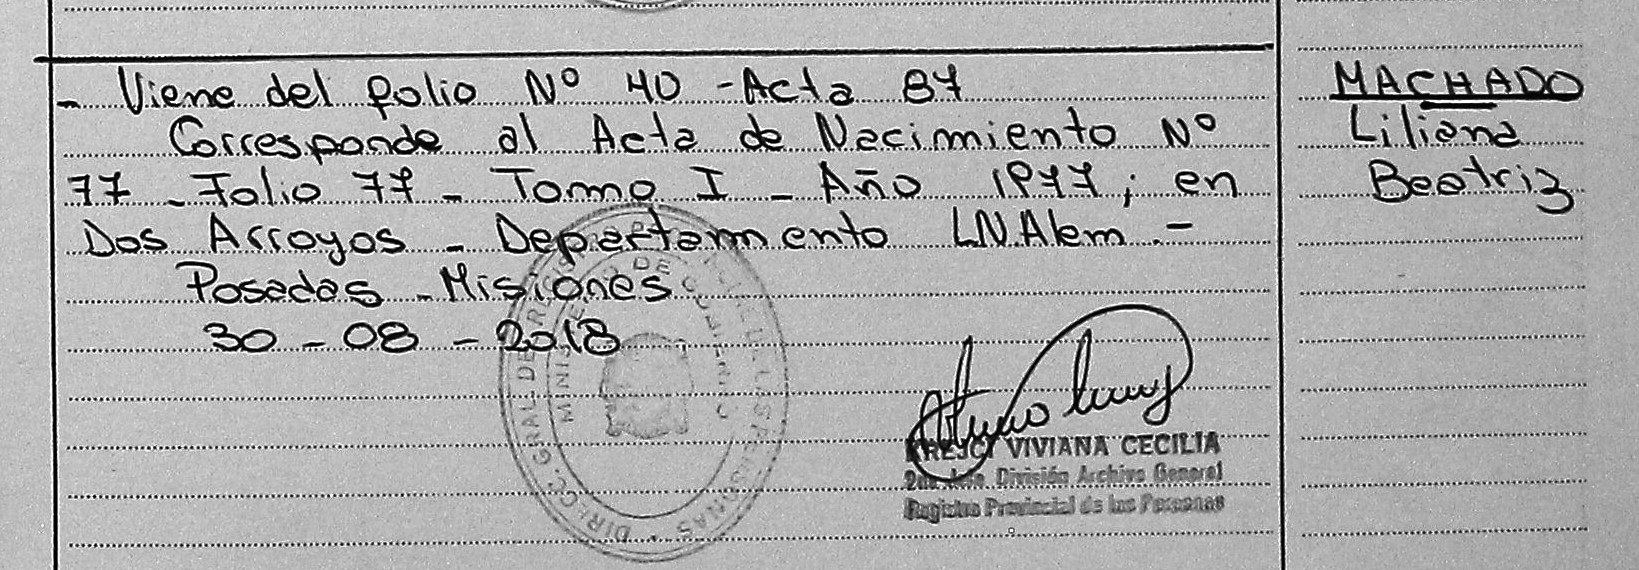 - Viene del folio Nº 40 - Acta 87
Corresponde al Acta de Nacimiento Nº
77 - Folio 77 - Tomo I - Año 1977; en
Dos Arroyos - Departamento L.N.Alem.-
Posadas - Misiones
30 - 08 - 2018
MACHADO
Liliana
Beatriz
DIRECC. GRAL DE REGISTRO DE LAS PERSONAS
MINISTERIO DE GOBIERNO
KREJCI VIVIANA CECILIA
2da. Jefe División Archivo General
Registro Provincial de las Personas